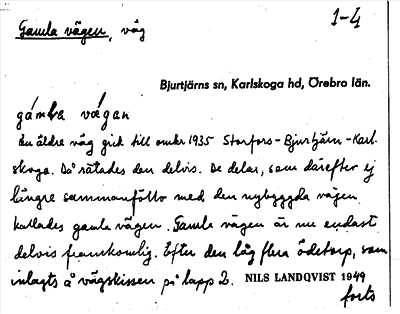 Gamla vägen, väg
1-4
Bjurtjärns sn, Karlskoga hd, Örebro län.
gámla vǽgan
En äldre väg gick till omkr 1935 Storfors-Bjurtjärn-Karl-
skoga. Då rätades den delvis. De delar, som därefter ej
längre sammanföllo med den nybyggda vägen
kallades gamla vägen. Gamla vägen är nu endast
delvis framkomlig. Efter den låg flera ödetorp, som
inlagts å vägskissen på lapp 2. NILS LANDQVIST 1949
forts